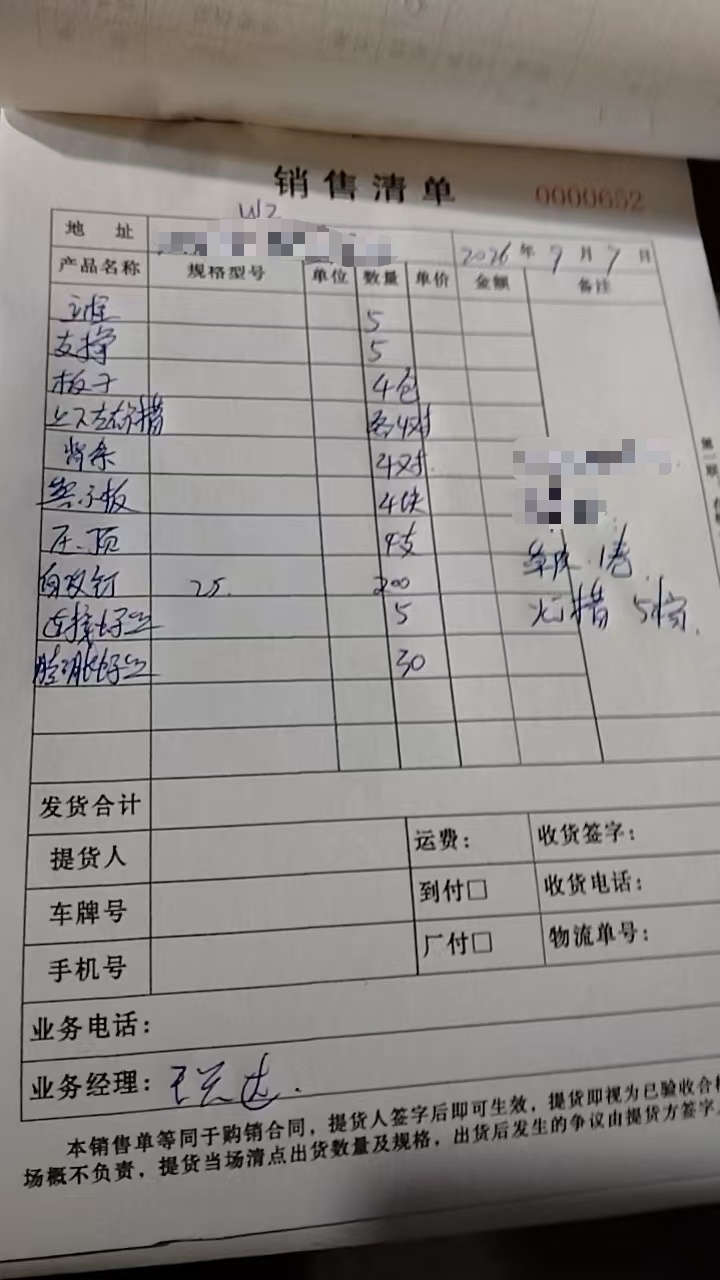 销售清单 0000652
地址 2026年9月7日
产品名称 规格型号 单位 数量 单价 金额 备注
5
支撑 5
板子 4包
上下左右措 各4对
背条 4对.
垫子板 4块
压顶 4支
自攻钉 25. 200
1卷.
连接好丝 5
灯措 5根.
膨胀好丝 30
发货合计
提货人 运费: 收货签字:
车牌号 到付□ 收货电话:
手机号 厂付□ 物流单号:
业务电话:
业务经理: 王兴达.
本销售单等同于购销合同，提货人签字后即可生效，提货即视为已验收合
场概不负责，提货当场清点出货数量及规格，出货后发生的争议由提货方签字